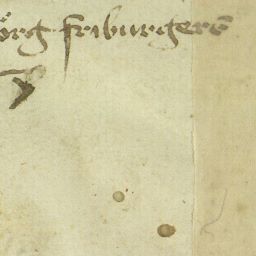 örg friburgers